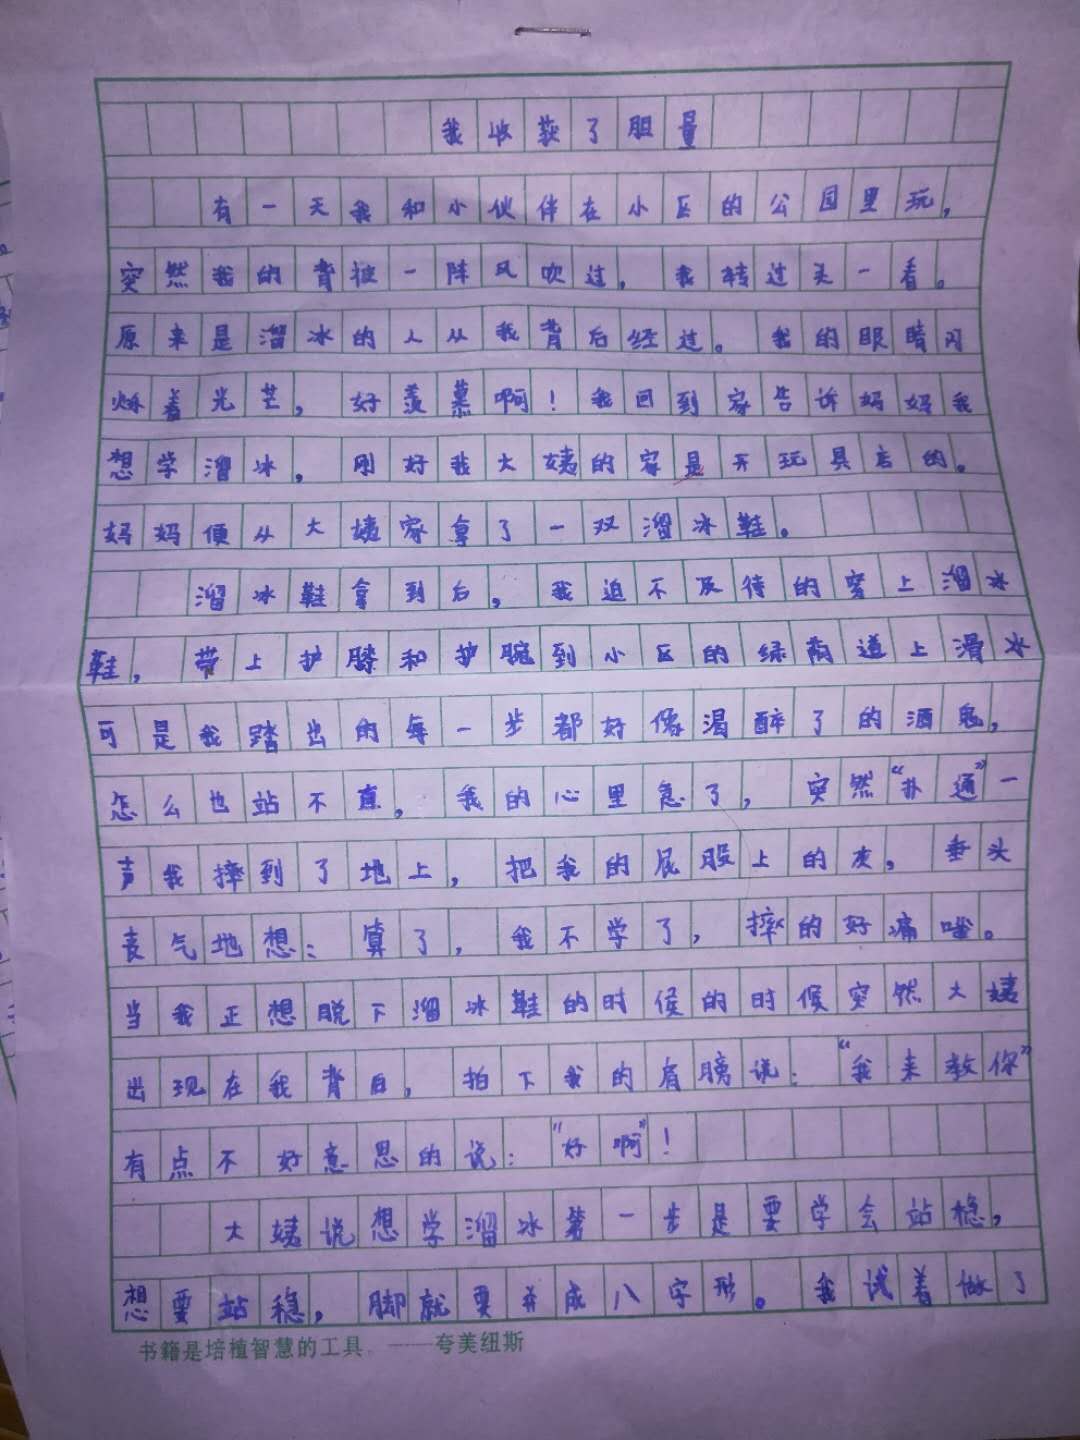 我收获了胆量
有一天我和小伙伴在小区的公园里玩，
突然我的背被一阵风吹过，我转过头一看。
原来是溜冰的人从我背后经过。我的眼睛闪
烁着光芒，好羡慕啊！我回到家告诉妈妈我
想学溜冰，刚好我大姨的家是开玩具店的。
妈妈便从大姨家拿了一双溜冰鞋。
溜冰鞋拿到后，我迫不及待的穿上溜冰
鞋，带上护膝和护腕到小区的绿荫道上滑冰
可是我踏出的每一步都好像渴醉了的酒鬼，
怎么也站不直，我的心里急了，突然“扑通”一
声我摔到了地上，把我的屁股上的灰，垂头
丧气地想：算了，我不学了，摔的好痛嗞。
当我正想脱下溜冰鞋的时侯的时候突然大姨
出现在我背后，拍下我的肩膀说：“我来教你”
有点不好意思的说：“好啊”！
大姨说想学溜冰第一步是要学会站稳，
想要站稳，脚就要并成八字形。我试着做了
书籍是培植智慧的工具。——夸美纽斯